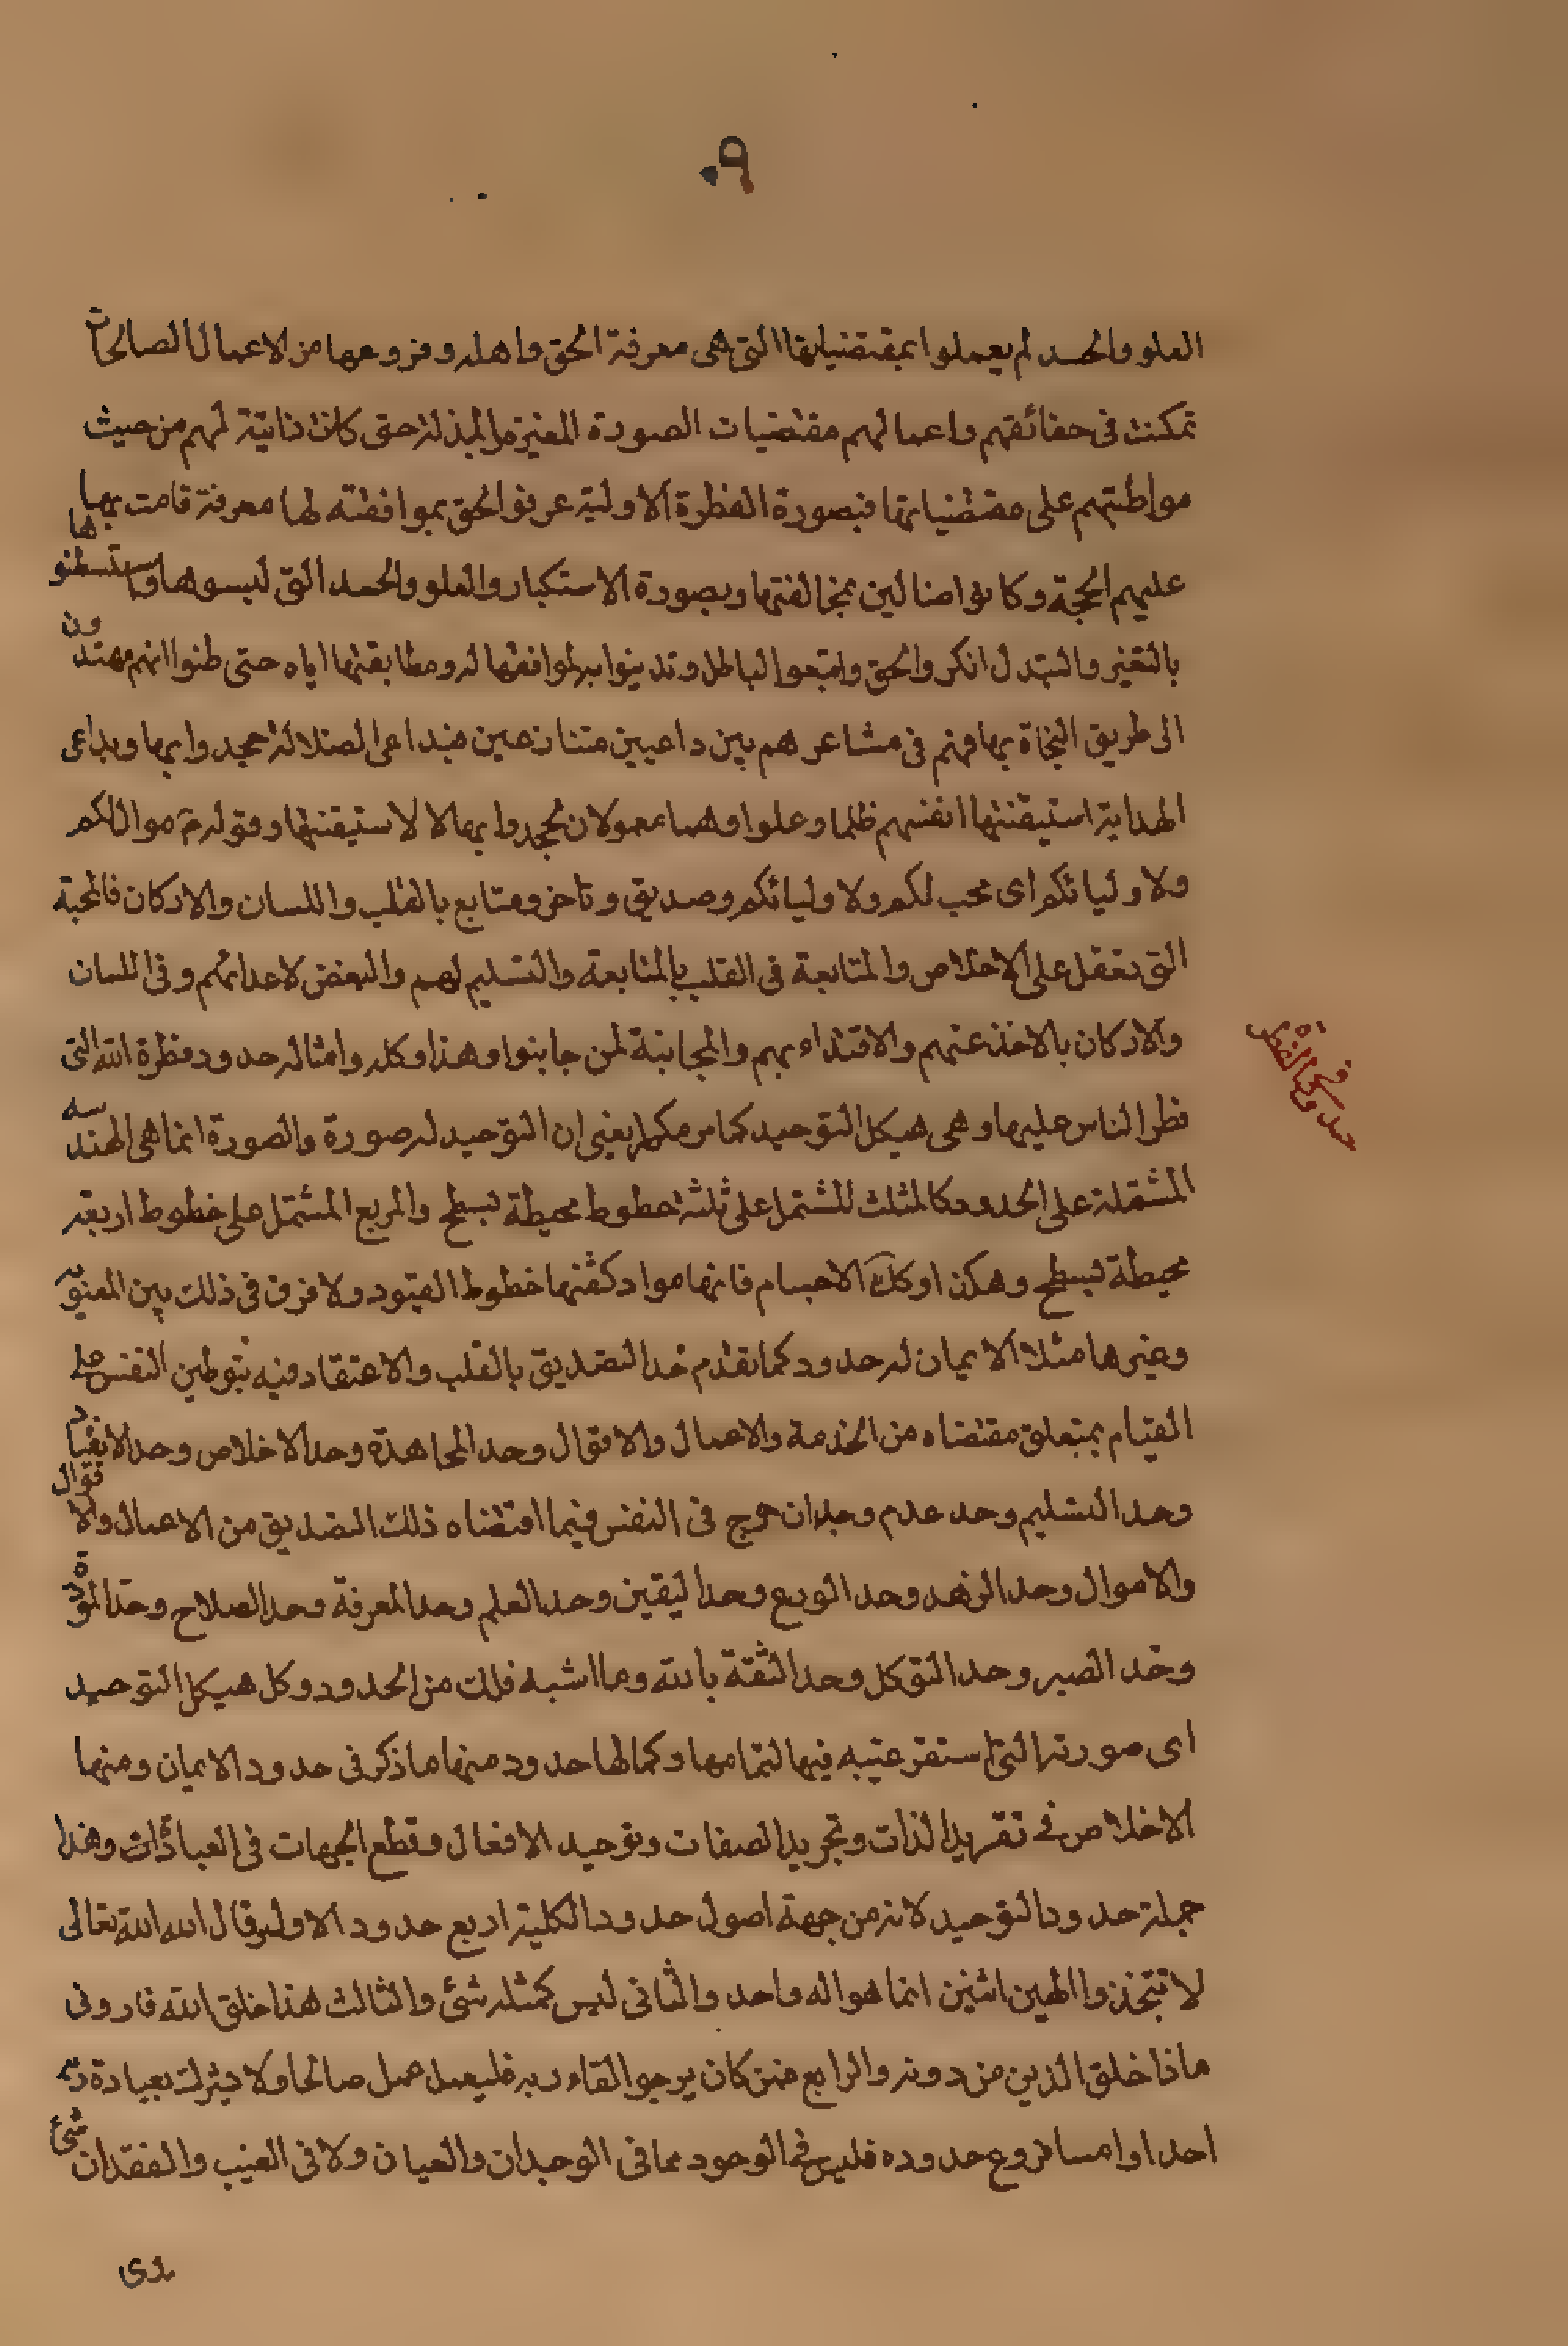 ٩
العلو والحسد لم يعملوا بمقتضياتها التى هى معرفة الحق واهله وفروعها من الاعمال الصالحات
تمكنت فى حقائقهم واعمالهم مقتضيات الصورة المغيرة المبدلة حتى كانت ذاتية لهم من حيث
مواطئتهم على مقتضياتها فبصورة الفطرة الاولية عرفوا الحق بموافقته لها معرفة قامت بها
عليهم الحجة وكانوا ضالين بمخالفتها وبصورة الاستكبار والعلو والحسد التى لبسوها واستبطنوها
بالتغير والتبدل انكروا الحق واتبعوا الباطل وتدينوا به لموافقتها له ومطابقتها اياه حتى ظنوا انهم مهتدون
الى طريق النجاة بها فهم فى مشاعرهم بين داعيين متنازعين فبداعى الضلالة جحدوا بها وبداعى
الهداية استيقنتها انفسهم ظلما وعلوا وهما معمولان لجحدوا بها لا لاستيقنتها وقوله ع موال لكم
ولاوليائكم اى محب لكم ولاوليائكم وصديق وناصر ومتابع بالقلب واللسان والاركان فالمحبة
التى تعقل على الاخلاص والمتابعة فى القلب بالمتابعة والتسليم لهم والبغض لاعدائهم وفى اللسان
والاركان بالاخذ عنهم والاقتداء بهم والمجانبة لمن جانبوا وهذا وكله وامثاله حدود فطرة الله التى
فطر الناس عليها وهى هيكل التوحيد كما مر مكررا يعنى ان التوحيد له صورة والصورة انما هى الهندسه
المشتملة على الحدود كالمثلث المشتمل على ثلثة خطوط محيطة بسطح والمربع المشتمل على خطوط اربعة
محيطة بسطح وهكذا وكك الاجسام فانها مواد كثفتها خطوط القيود ولا فرق فى ذلك بين المعنوية
وغيرها مثلا الايمان له حدود كما تقدم فحد التصديق بالقلب والاعتقاد فيه بتوطين النفس على
القيام بمتعلق مقتضاه من الخدمة والاعمال والاقوال وحد المجاهدة وحد الاخلاص وحد الانقياد
وحد التسليم وحد عدم وجدان حرج فى النفس فيما اقتضاه ذلك التصديق من الاعمال والاقوال
والاموال وحد الزهد وحد الورع وحد اليقين وحد العلم وحد المعرفة وحد الصلاح وحد المودة
وحد الصبر وحد التوكل وحد الثقة بالله وما اشبه ذلك من الحدود وكل هيكل التوحيد
اى صورته التى استقر غيبه فيها لتمامها وكمالها حدود منها ما ذكر فى حدود الايمان ومنها
الاخلاص فى تفريد الذات وتجريد الصفات وتوحيد الافعال وقطع الجهات فى العبادات وهذا
جملة حدود التوحيد لانه من جهة اصول حدوده الكلية اربع حدود الاول قال الله الله تعالى
لا تتخذوا الهين اثنين انما هو اله واحد والثانى ليس كمثله شئ والثالث هذا خلق الله فارونى
ماذا خلق الذين من دونه والرابع فمن كان يرجوا لقاء ربه فليعمل عمل صالحا ولا يشرك بعبادة ربه
احدا واما فروع حدوده فليس فى الوجود مما فى الوجدان والعيان ولا فى الغيب والفقدان شئ
فى حدود
الفطرة